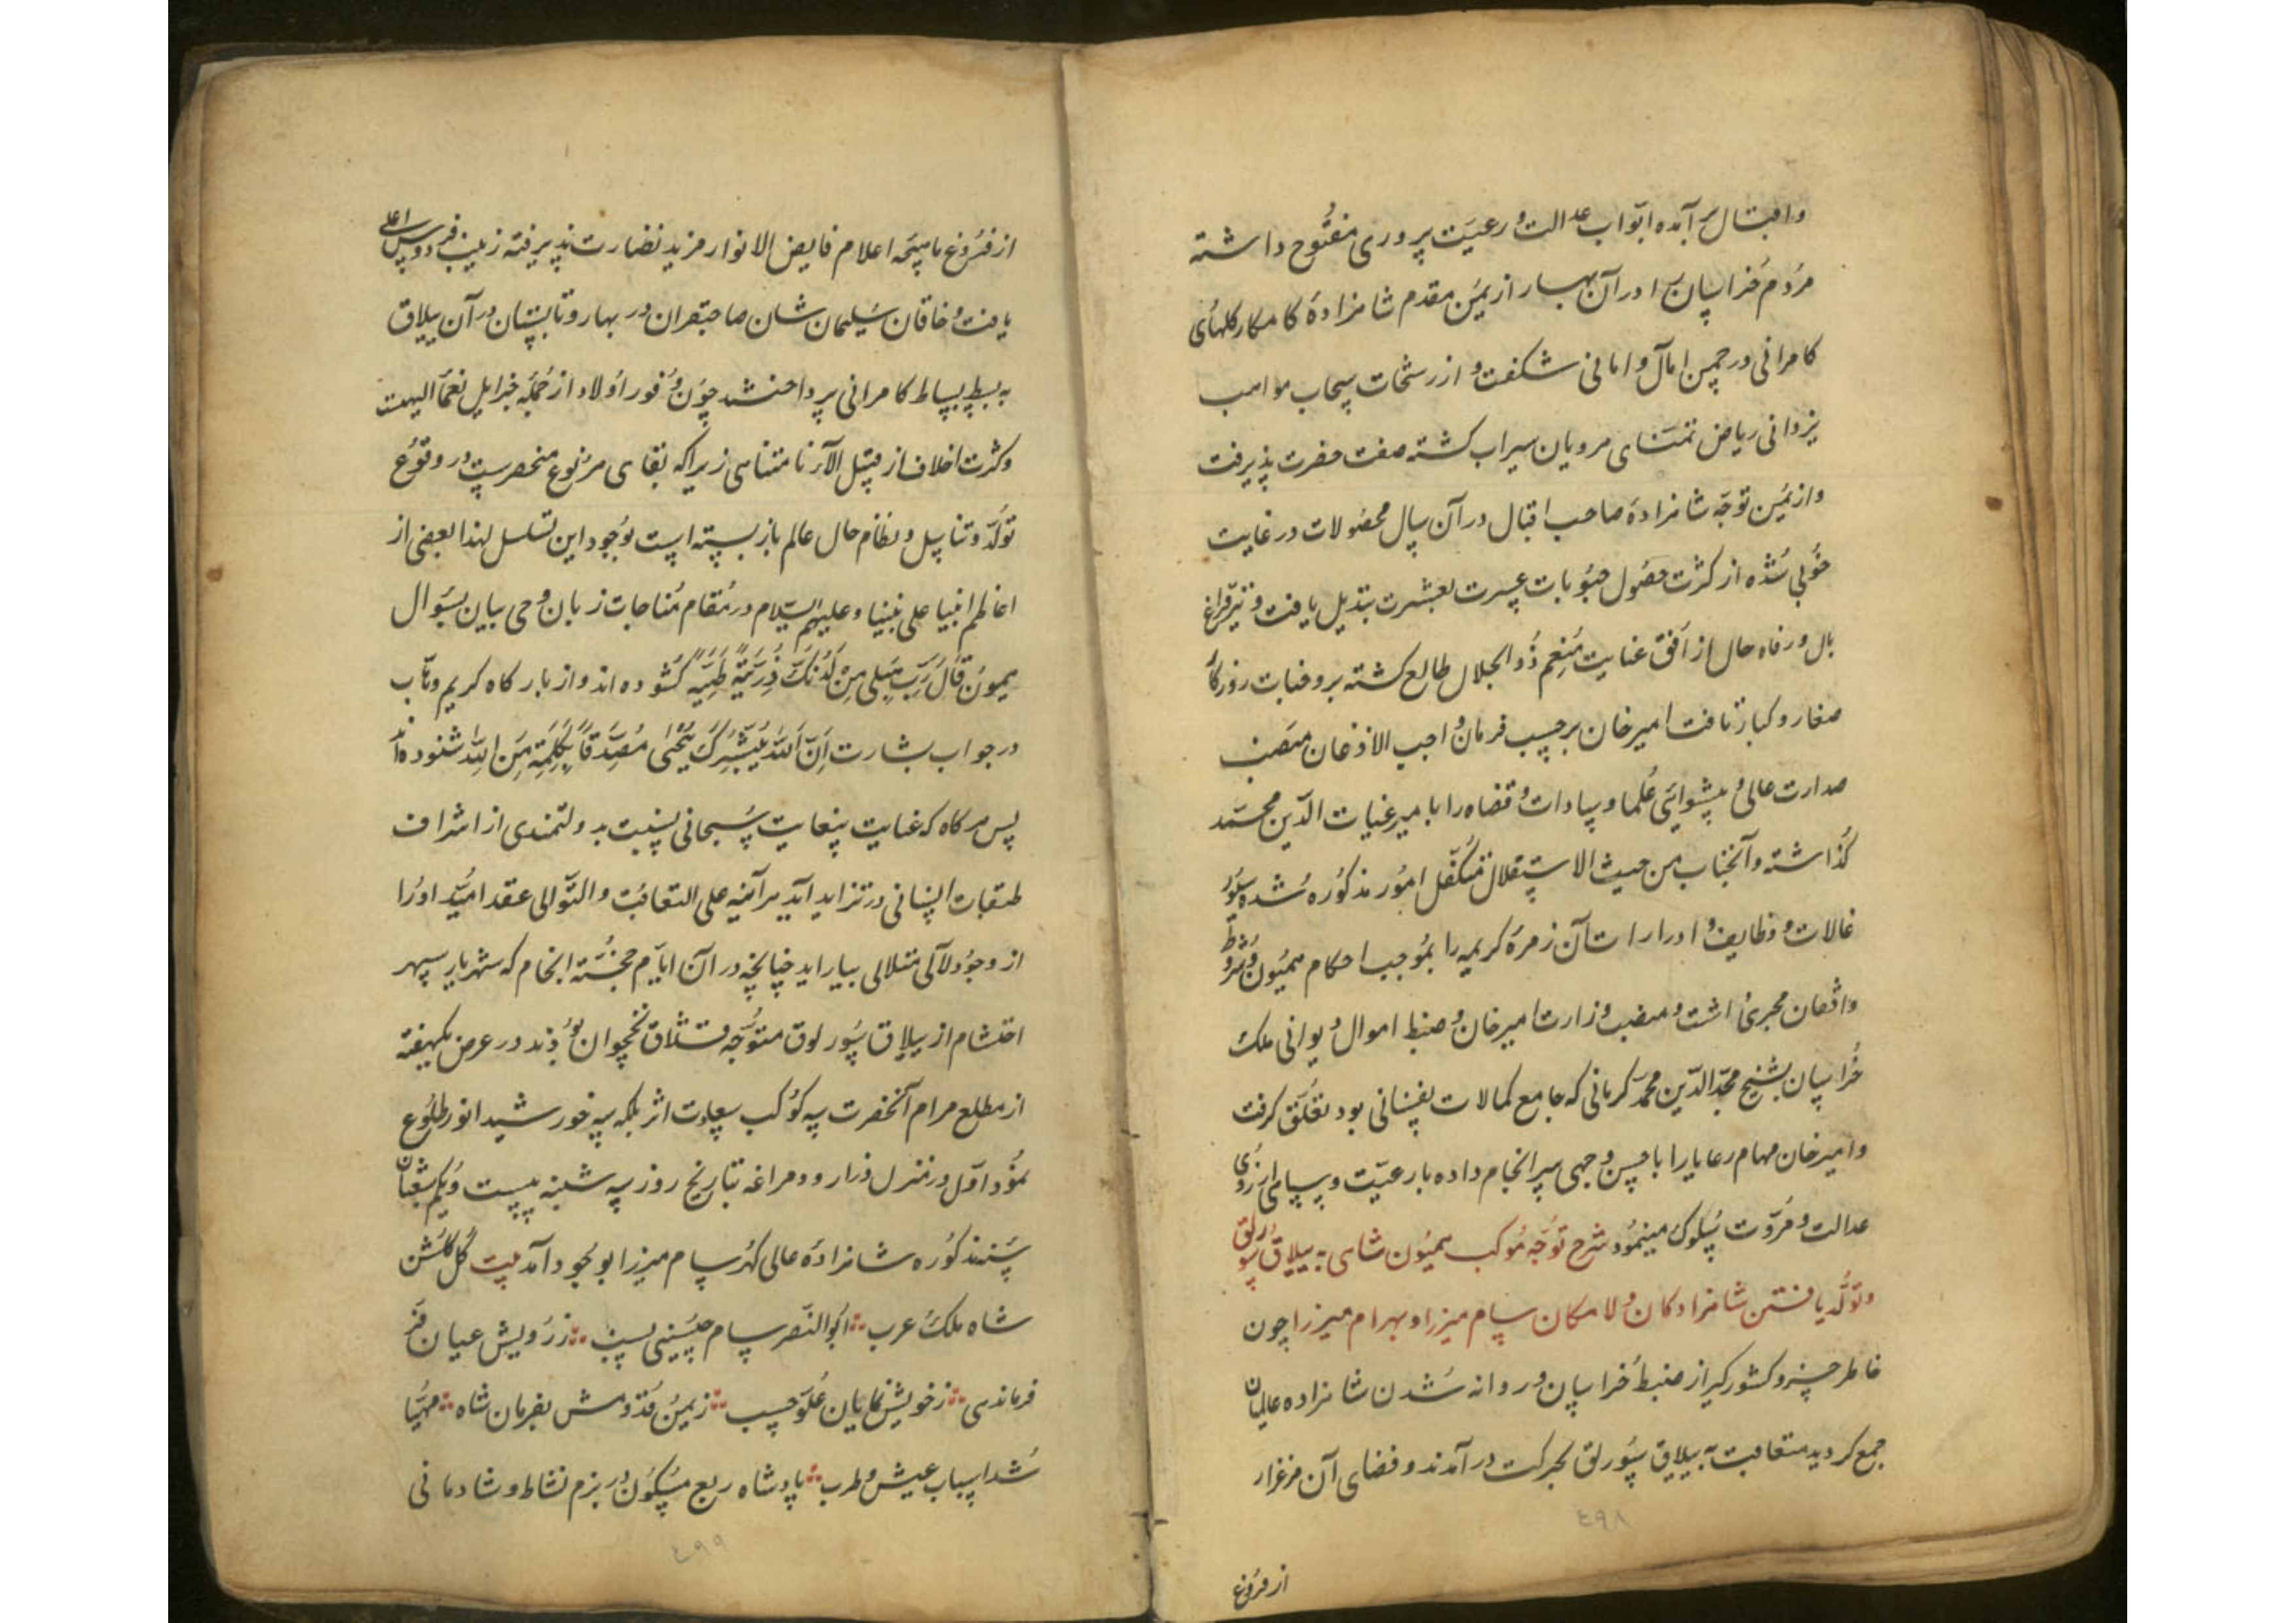 واقبال برآمده ابواب عدالت و رعیت پروری مفتوح داشته
مردم خراسان را در آن بهار از یمن مقدم شاهزادهٔ کامکار گلهای
کامرانی در چمن امال و امانی شکفت و از رشحات سحاب مواهب
یزدانی ریاض تمنای هرویان سیراب گشته صفت حضرت پذیرفت
و از یمن توجه شاهزادهٔ صاحب اقبال در آن سال محصولات در غایت
خوبی شده از کثرت حصول حبوبات عسرت بعشرت تبدیل یافت و نیر فراغ
بال و رفاه حال از افق عنایت منعم ذو الجلال طالع گشته بر وجنات روزگار
صغار و کبار تافت امیرخان برحسب فرمان واجب الاذعان منصب
صدارت عالی و پیشوائی علما و سادات و قضاه را با میر غیاث الدین محمد
گذاشته و آنجناب من حیث الاستقلال متکفل امور مذکوره شده سیور
غالات و وظایف و ادرارات آن زمرهٔ کریمه را بموجب احکام همیون و شروط
واقفان مجری داشت و منصب وزارت امیرخان و ضبط اموال دیوانی ملک
خراسان بشیخ مجد الدین محمد کرمانی که جامع کمالات نفسانی بود تعلق گرفت
و امیرخان مهام رعایا را با حسن وجهی سرانجام داده با رعیت و سپاهی از روی
عدالت و مروت سلوک مینمود شرح توجه موکب همیون شاهی به ییلاق سورلق
و تولد یافتن شاهزادگان ولا مکان سام میرزا و بهرام میرزا چون
خاطر خسرو کشورگیر از ضبط خراسان و روانه شدن شاهزاده عالمیان
جمع گردید متعاقب به ییلاق سورلق بحرکت درآمدند و فضای آن مرغزار
٤٩٨
از فروغ
از فروغ ماهیچه اعلام فایض الانوار مزید نضارت پذیرفته زینت فردوس اعلی
یافت و خاقان سلیمان شان صاحبقران در بهار و تابستان در آن ییلاق
به بسط بساط کامرانی پرداختند چون وفور اولاد از جمله جزایل نعماء الهیست
و کثرت اخلاف از قبیل الآء نامتناهی زیرا که بقای هر نوع منحصرست در وقوع
تولد و تناسل و نظام حال عالم باز بسته است بوجود این تسلسل لهذا بعضی از
اعاظم انبیا علی نبینا و علیهم السلام در مقام مناجات زبان وحی بیان بسوال
همیون قال رب هب لی من لدنک ذریة طیبه گشوده‌اند و از بارگاه کریم وهاب
در جواب بشارت ان الله یبشرک بیحیی مصدقا بکلمة من الله شنوده‌اند
پس هرگاه که عنایت بیغایت سبحانی نسبت بدولتمندی از اشراف
طبقات انسانی در تزاید آید هر آینه علی التعاقب و التوالی عقد امید او را
از وجود لآلی متلالی بیاراید چنانچه در آن ایام خجسته انجام که شهریار سپهر
احتشام از ییلاق سورلوق متوجه قشلاق نخچوان بودند در عرض یکهفته
از مطلع مرام آنحضرت سه کوکب سعادت اثر بلکه سه خورشید انور طلوع
نمود اول در منزل ذرارود مراغه بتاریخ روز سه شنبه بیست و یکم شعبان
سنه مذکوره شاهزادهٔ عالی گهر سام میرزا بوجود آمد بیت گل گلشن
شاه ملک عرب ابو النصر سام حسینی نسب ز رویش عیان فر
فرماندهی ز خویش نمایان علو حسب ز یمن قدومش بفرمان شاه مهیا
شد اسباب عیش و طرب پادشاه ربع مسکون در بزم نشاط و شادمانی
٤٩٩